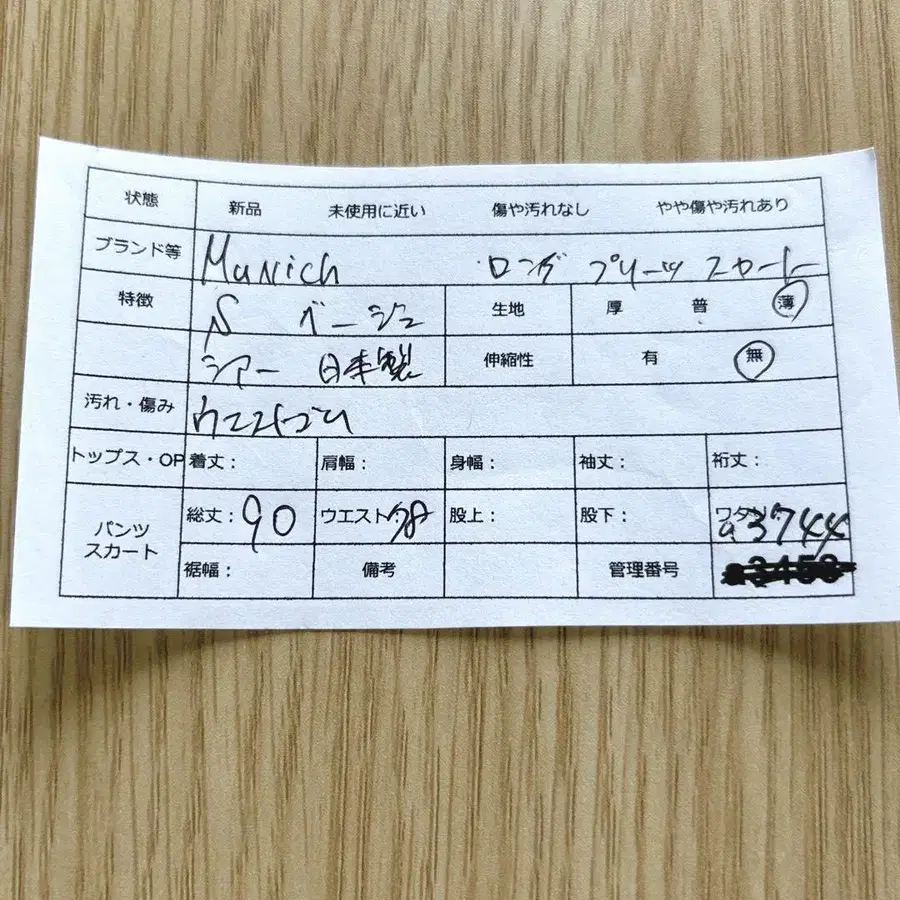 状態 新品 未使用に近い 傷や汚れなし やや傷や汚れあり
ブランド等 Munich ロング プリーツ スカート
特徴 S ベージュ 生地 厚 普 薄
シアー 日本製 伸縮性 有 無
汚れ・傷み ウエストゴム
トップス・OP 着丈: 肩幅: 身幅: 袖丈: 裄丈:
パンツ スカート 総丈:90 ウエスト: 股上: 股下: ワタリ: a3744
裾幅: 備考 管理番号